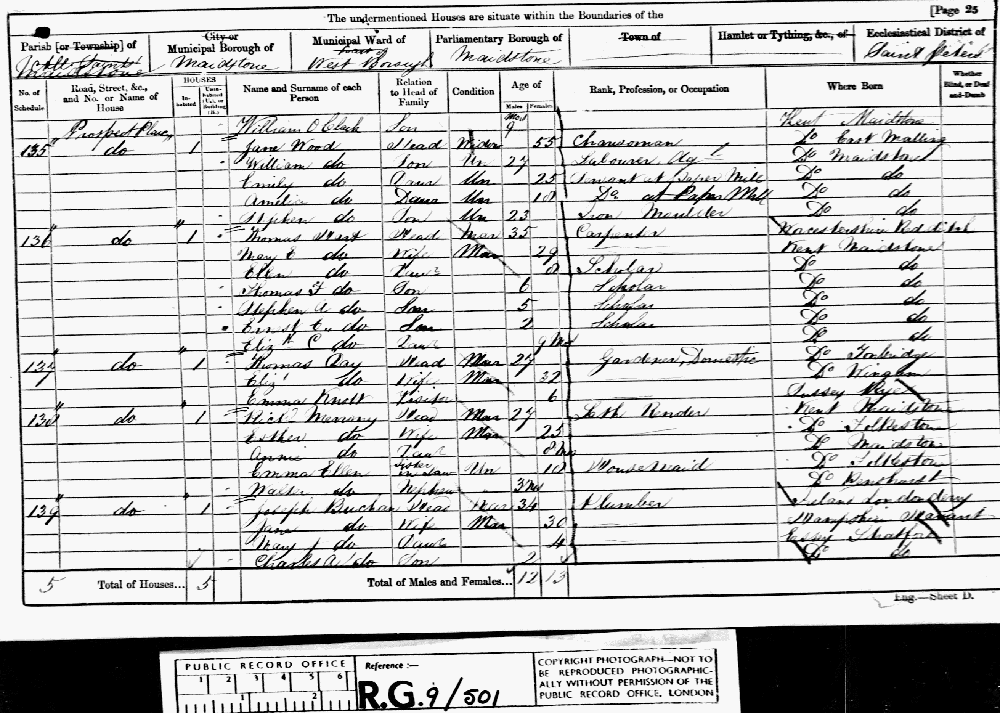 The undermentioned Houses are situate within the Boundaries of the [Page 25
Parish [or Township] of City or Municipal Borough of Municipal Ward of Parliamentary Borough of Town of Hamlet or Tything, &c., of Ecclesiastical District of
Maidstone Maidstone West Borough Maidstone Saint Peters
No. of Schedule Road, Street, &c., and No. or Name of House HOUSES Inhabited Uninhabited (U.), or Building (B.) Name and Surname of each Person Relation to Head of Family Condition Age of Males Females Rank, Profession, or Occupation Where Born Whether Blind, or Deaf-and-Dumb
Prospect Place William O Clack Son 9 Mos Kent Maidstone
135 do 1 Jane Wood Head Widow 55 Charwoman Do East Malling
William do Son Un 27 Labourer Ag Do Maidstone
Emily do Daur Un 25 Servant at Paper Mill Do do
Amelia do Daur Un 18 Do at Paper Mill Do do
Stephen do Son Un 23 Iron Moulder Do do
136 do 1 Thomas Hart Head Mar 35 Carpenter Worcestershire Redditch
Mary E do Wife Mar 29 Kent Maidstone
Ellen do Daur 8 Scholar Do do
Thomas F do Son 6 Scholar Do do
Stephen A do Son 5 Scholar Do do
Ernest E do Son 2 Scholar Do do
Elizth C do Daur 9 Mos Do do
137 do 1 Thomas Day Head Mar 27 Gardener, Domestic Do Tonbridge
Eliz do Wife Mar 32 Do Wingham
Emma Knott Visitor 6 Sussex Rye
138 do 1 Richd Memary Head Mar 27 Lath Render Kent Maidstone
Esther do Wife Mar 25 Do Folkestone
Annie do Daur 8 Mos Do Maidstone
Emma Ellen Sister in Law Un 18 Housemaid Do Folkestone
Walter do Nephew 3 Mos Do Penshurst
139 do 1 Joseph Buchan Head Mar 34 Plumber Ireland Londonderry
Jane do Wife Mar 30 Hampshire Havant
Mary J do Daur 4 Essex Stratford
Charles A do Son 2 Do do
5 Total of Houses... 5 Total of Males and Females... 12 13
Eng.—Sheet D.
PUBLIC RECORD OFFICE
1 2 3 4 5 6
1 2
Reference:—
R.G. 9/501
COPYRIGHT PHOTOGRAPH—NOT TO
BE REPRODUCED PHOTOGRAPHIC-
ALLY WITHOUT PERMISSION OF THE
PUBLIC RECORD OFFICE, LONDON